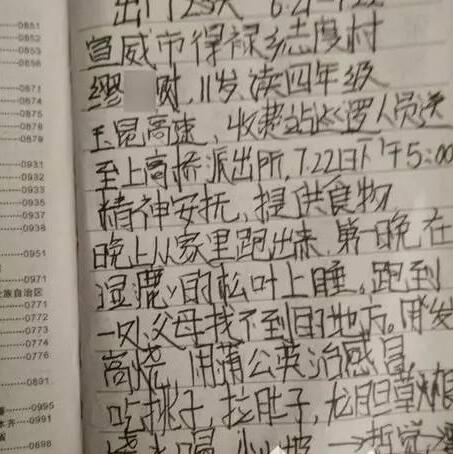 0851
0852
0853
0856
0871
0874
0875
0878
0879
0931
0932
0933
0935
0937
0938
0951
0971
士族自治区
0771
0772
0773
0774
0776
0891
0995
0991
0898
出门23天 6.27-7.22
宣威市得禄乡志度村
缪 财,11岁,读四年级
玉昆高速,收费站巡逻人员送
至上高桥派出所,7.22日下午5:00
精神安抚,提供食物
晚上从家里跑出来,第一晚在
湿漉漉的松叶上睡。跑到
一只父母找不到的地方。用发
高烧,用蒲公英治感冒
吃挑子,拉肚子,龙胆草根
烧水喝
哲觉